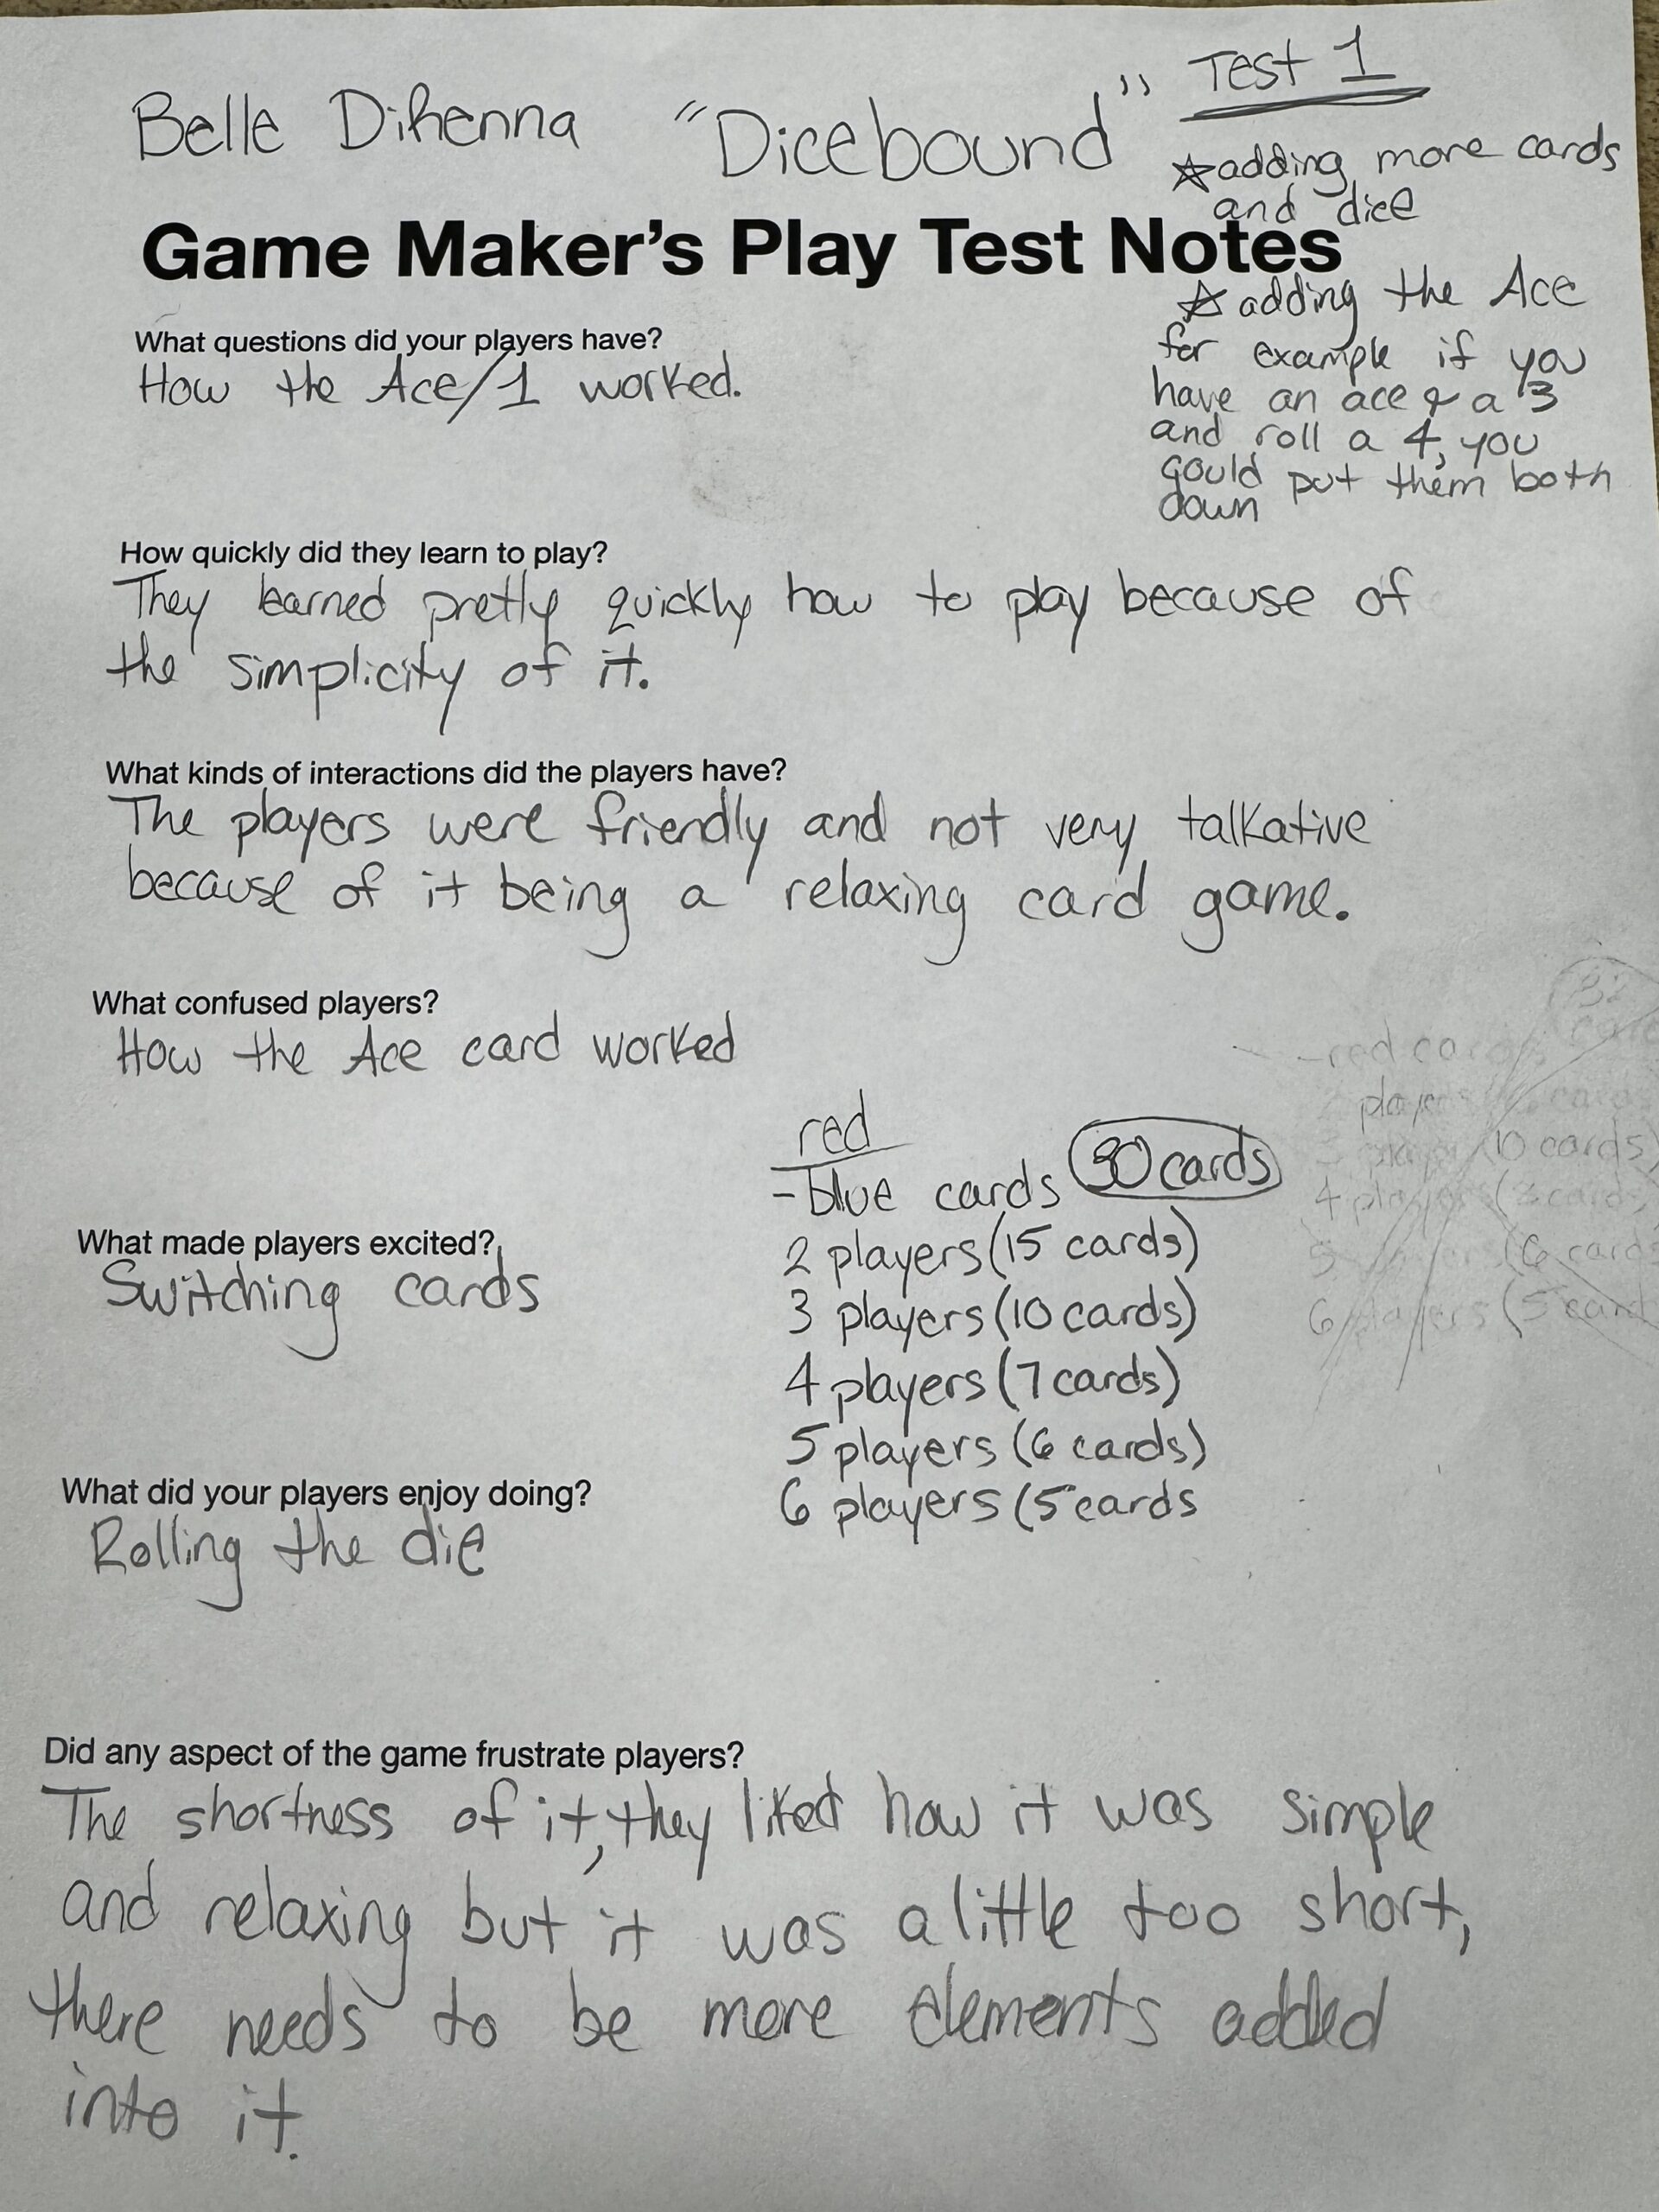 Belle Dihenna "Dicebound" Test 1
☆ adding more cards
and dice
Game Maker's Play Test Notes
☆ adding the Ace
for example if you
have an ace & a 3
and roll a 4, you
gould put them both
down
What questions did your players have?
How the Ace/1 worked.
How quickly did they learn to play?
They learned pretly quickly how to play because of
the simplicity of it.
What kinds of interactions did the players have?
The players were friendly and not very talkative
because of it being a relaxing card game.
What confused players?
How the Ace card worked
red
- blue cards 30 cards
2 players (15 cards)
3 players (10 cards)
4 players (7 cards)
5 players (6 cards)
6 players (5 cards
-red cards
players cards
(10 cards)
4 players cards
5 (6 cards
6 players (5 card
What made players excited?
Switching cards
What did your players enjoy doing?
Rolling the die
Did any aspect of the game frustrate players?
The shortness of it, they liked how it was simple
and relaxing but it was a little too short,
there needs to be more elements added
into it.